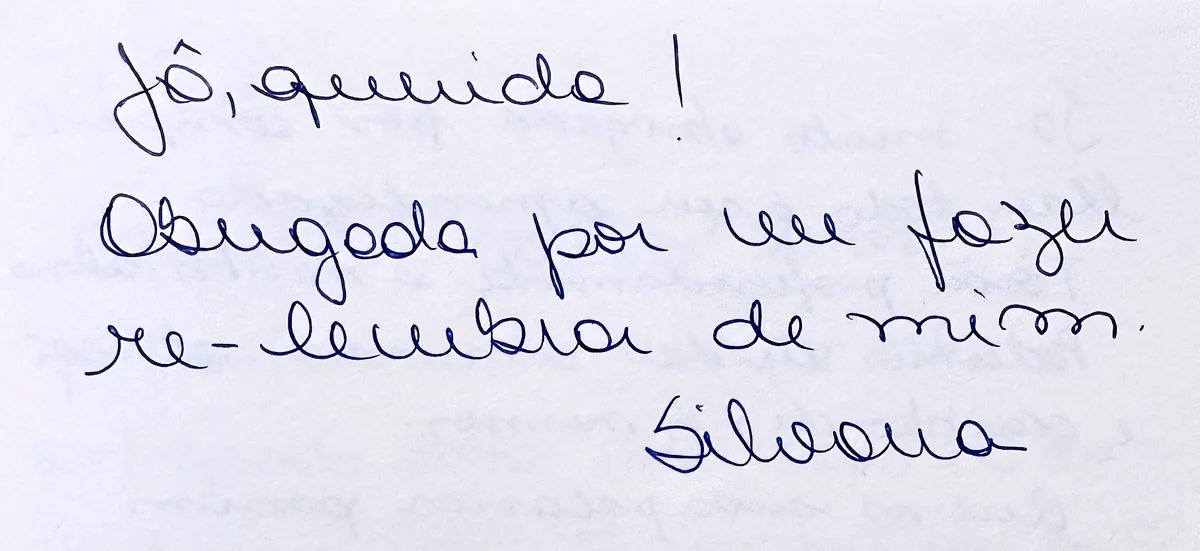 Jô, querida!
Obrigada por me fazer
re-lembrar de mim.
Silvana